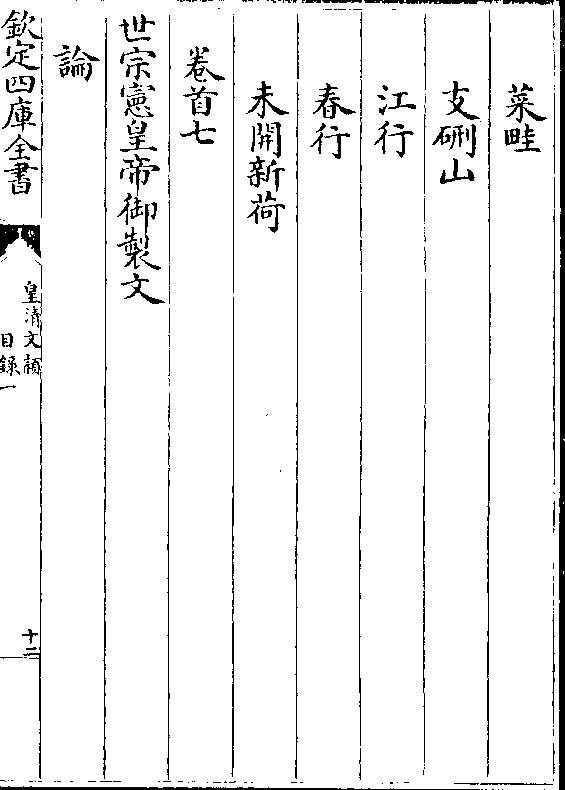 菜畦
支硎山
江行
春行
未開新荷
卷首七
世宗憲皇帝御製文
論
欽定四庫全書
皇清文穎
目錄一
十二